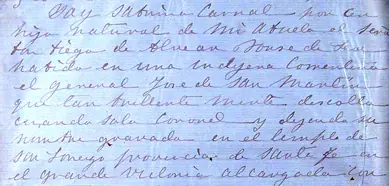 hija natural de mi Abuelo el Señor
Don Diego de Alvear Ponse de Leon
habida en una indígena Comentaria
el general Jose de San Martín
que tan brillente mente descolla
cuando solo Coronel y dejando su
nombre gravado en el templo de
San Lorenzo provincia de Santa Fe en
el grande victoria alcanzada con